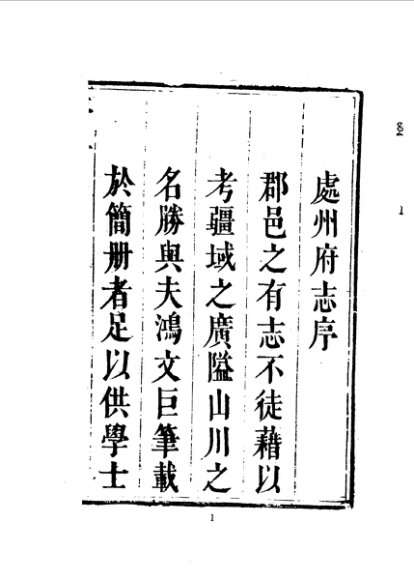 處州府志序
郡邑之有志不徒藉以
考疆域之廣隘山川之
名勝與夫鴻文巨筆載
於簡册者足以供學士
1
1